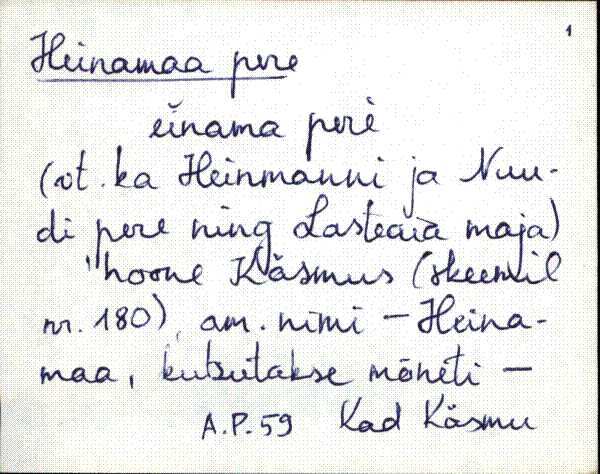 1
Heinamaa pere
einama perè
(vt. ka Heinmanni ja Nuu-
di pere ning Lasteaia maja)
"hoone Käsmus (skeemil
nr. 180), am. nimi – Heina-
maa, kutsutakse mõneti –
A.P.59 Kad Käsmu